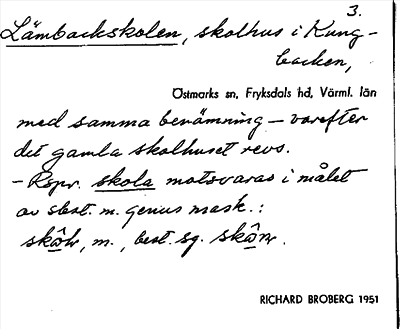 3.
Lämbackskolen, skolhus i Kung-
backen,
Östmarks sn, Fryksdals hd, Värml. län
med samma benämning – varefter
det gamla skolhuset revs.
– Rspr. skola motsvaras i målet
av sbst. m. genus mask.:
m., best. sg.
RICHARD BROBERG 1951